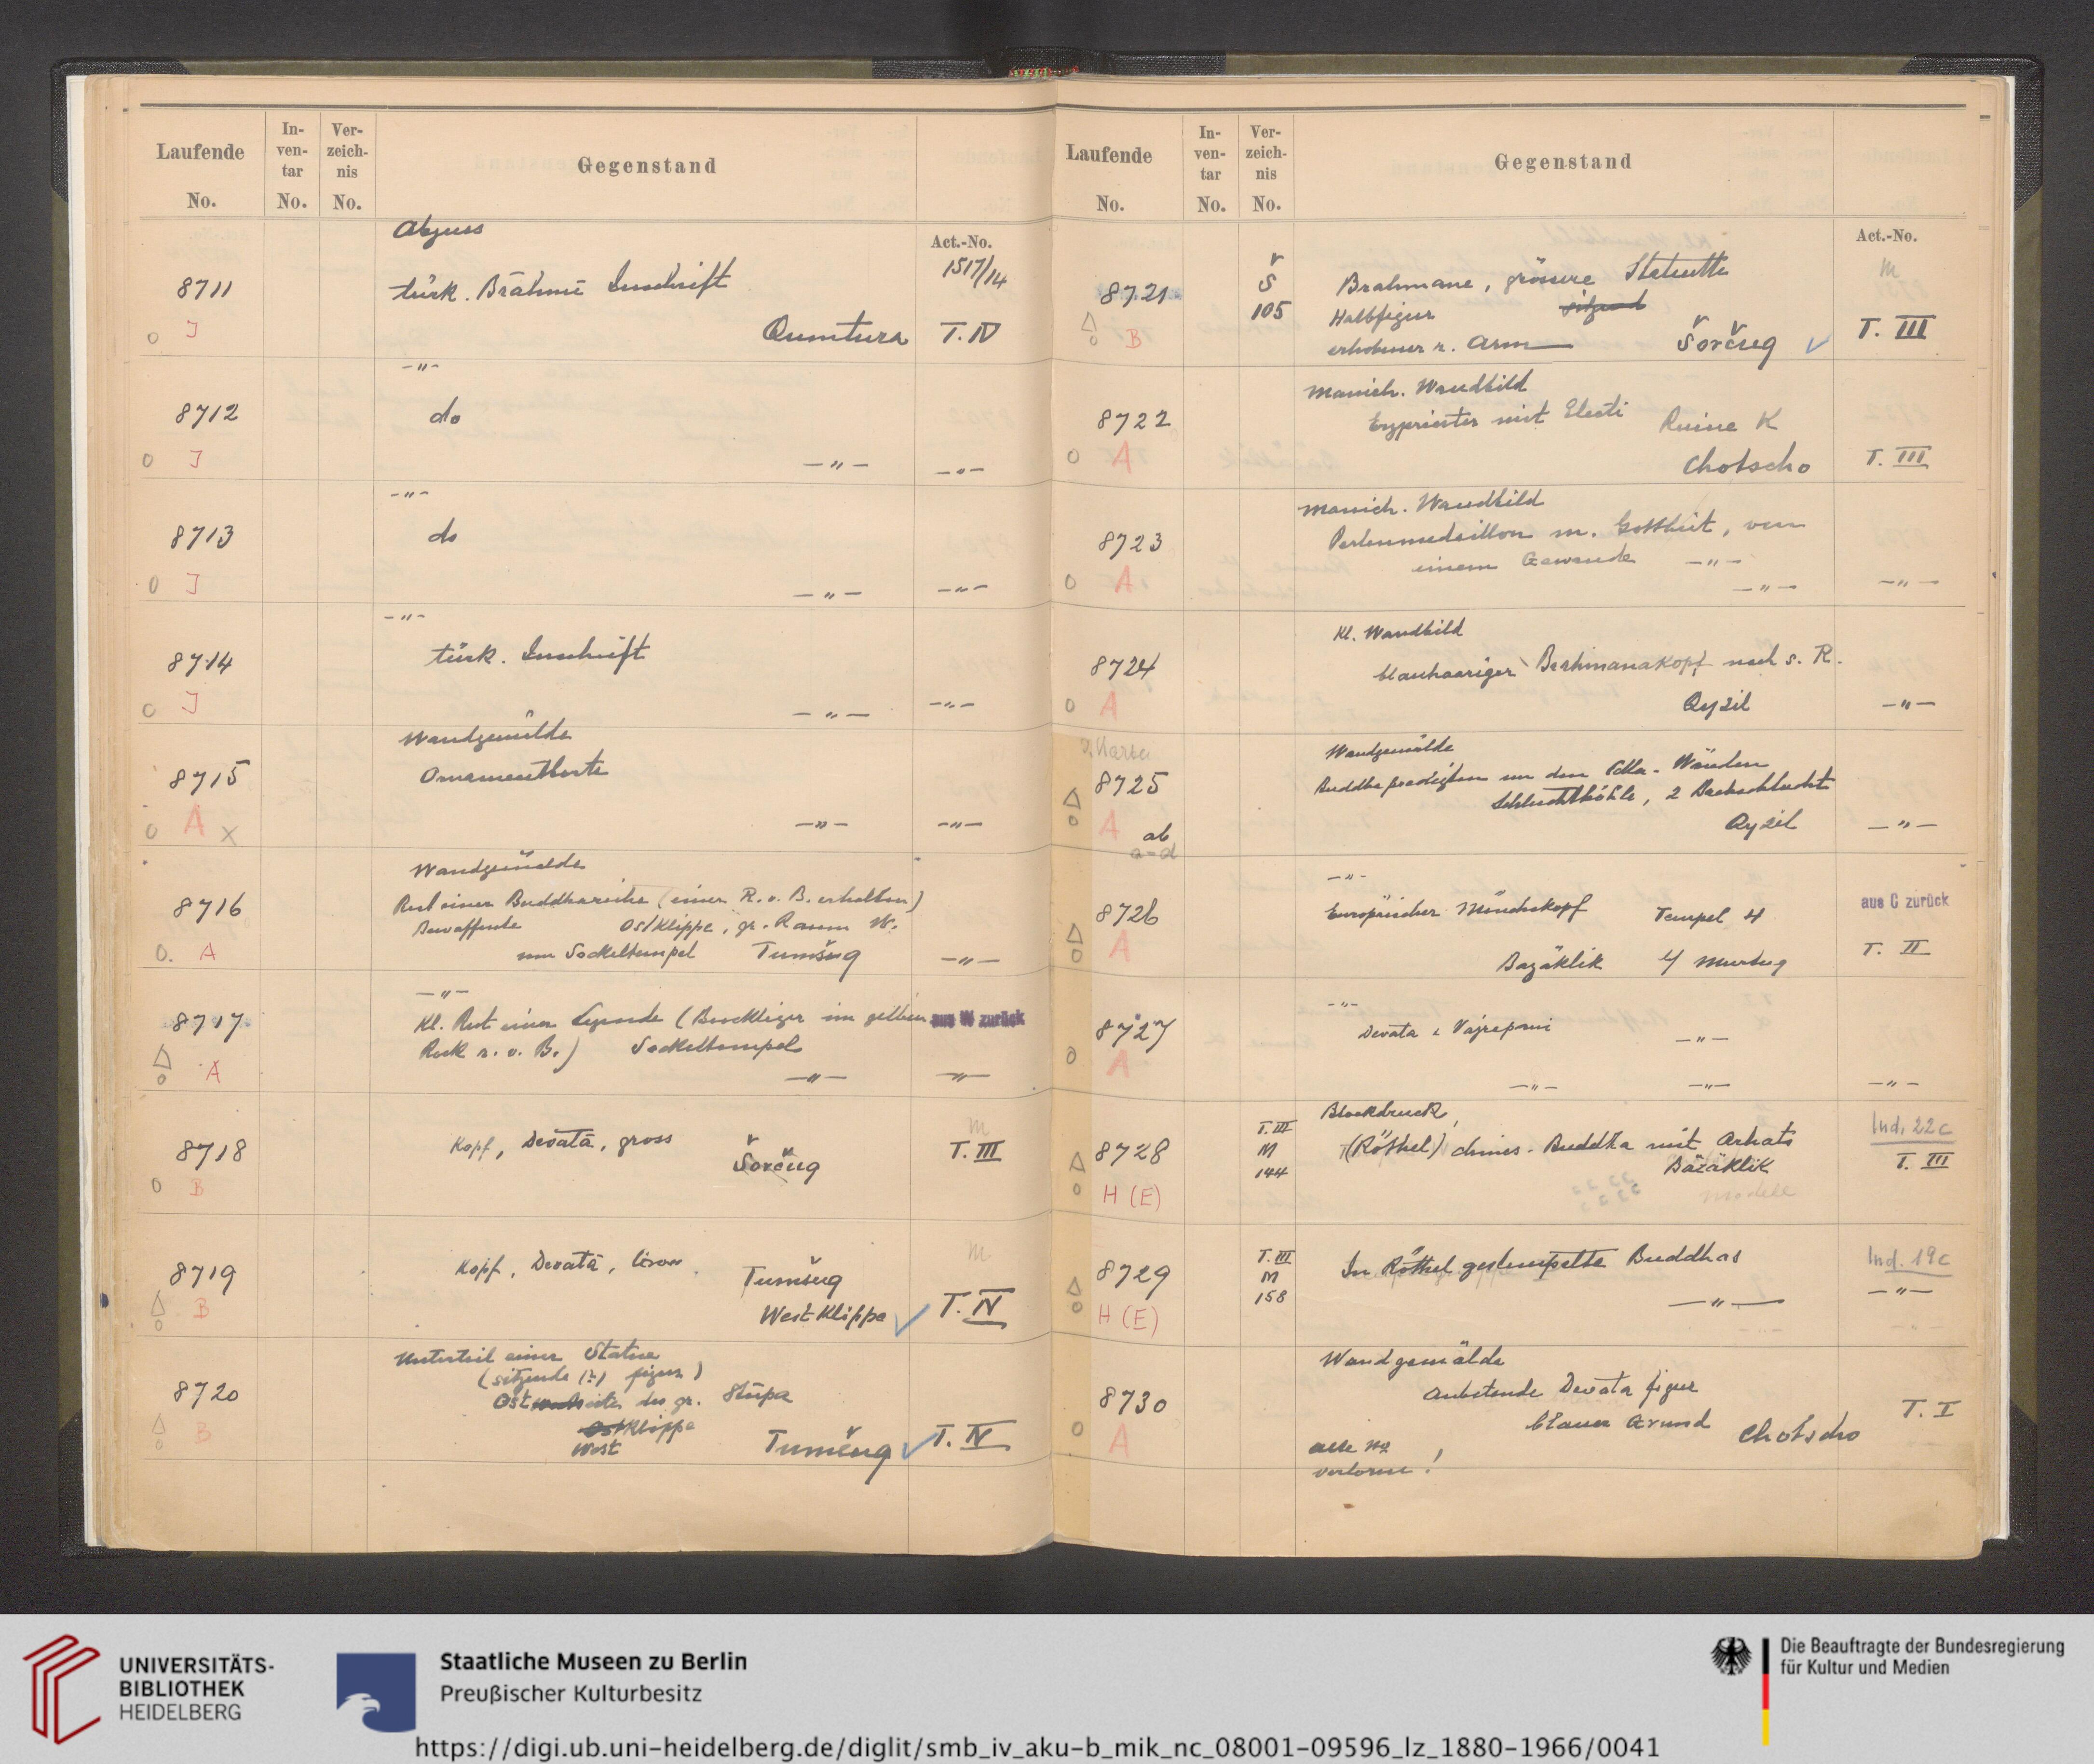 Laufende No.
In-ven-tar No.
Ver-zeich-nis No.
Gegenstand
Act.-No.
1517/14
8711
J
Abguss
türk. Brāhmī Inschrift
Qumtura T. IV
8712
J
-"-
do
-"- -"-
8713
J
-"-
do
-"- -"-
8714
J
-"-
türk. Inschrift
-"- -"-
8715
A x
Wandgemälde
Ornamentborte
-"- -"-
8716
A
Wandgemälde
Rest einer Buddhareihe (einer R. v. B. erhalten)
Ostklippe, gr. Raum W.
vom Sockeltempel Tumšug -"-
8717
A
-"-
Kl. Rest einer Legende ( im gelben aus W zurück
Rock r. v. B.) Sockeltempel
-"- -"-
8718
B
Kopf, Devatā, gross
Šorčug
m
T. III
8719
B
Kopf, Devatā,
Tumšug
Westklippe
m
T. IV
8720
B
Unterteil einer Statue
(sitzende (?) figur)
Ost des gr. Stūpa
Ostklippe
West
Tumšug T. IV
Laufende No.
In-ven-tar No.
Ver-zeich-nis No.
Gegenstand
Act.-No.
8721
B
S
105
Brahmane, grössere Statuette
Halbfigur sitzend
erhobener r. Arm Šorčug
m
T. III
8722
A
Manich. Wandbild
Erzpriester mit Electi Ruine K
Chotscho T. III
8723
A
Manich. Wandbild
Perlenmedaillon m. Gottheit, von
einem Gewande -"-
-"- -"-
8724
A
Kl. Wandbild
blauhaariger Brahmanakopf nach s. R.
Qyzil -"-
8725
A ab
a-d
Wandgemälde
Buddhapredigten von den Cella-Wänden
Schluchthöhle, 2 Bachschlucht
Qyzil -"-
8726
A
-"-
Europäischer Mönchskopf Tempel 4
Bazäklik b/ Murtug
aus C zurück
T. II
8727
A
-"-
Devata & Vajrapani -"-
-"- -"- -"-
8728
H (E)
T. III
M
144
Blockdruck,
(Röthel) chines. Buddha mit Arhats
Bäzäklik
Ind. 22c
T. III
8729
H (E)
T. III
M
158
In Röthel gestempelte Buddhas
-"-
Ind. 19c
-"-
8730
A
Wandgemälde
anbetende Devata figur
blauer Grund Chotscho
T. I
alte No
verloren!
UNIVERSITÄTS-
BIBLIOTHEK
HEIDELBERG
Staatliche Museen zu Berlin
Preußischer Kulturbesitz
Die Beauftragte der Bundesregierung
für Kultur und Medien
https://digi.ub.uni-heidelberg.de/diglit/smb_iv_aku-b_mik_nc_08001-09596_lz_1880-1966/0041